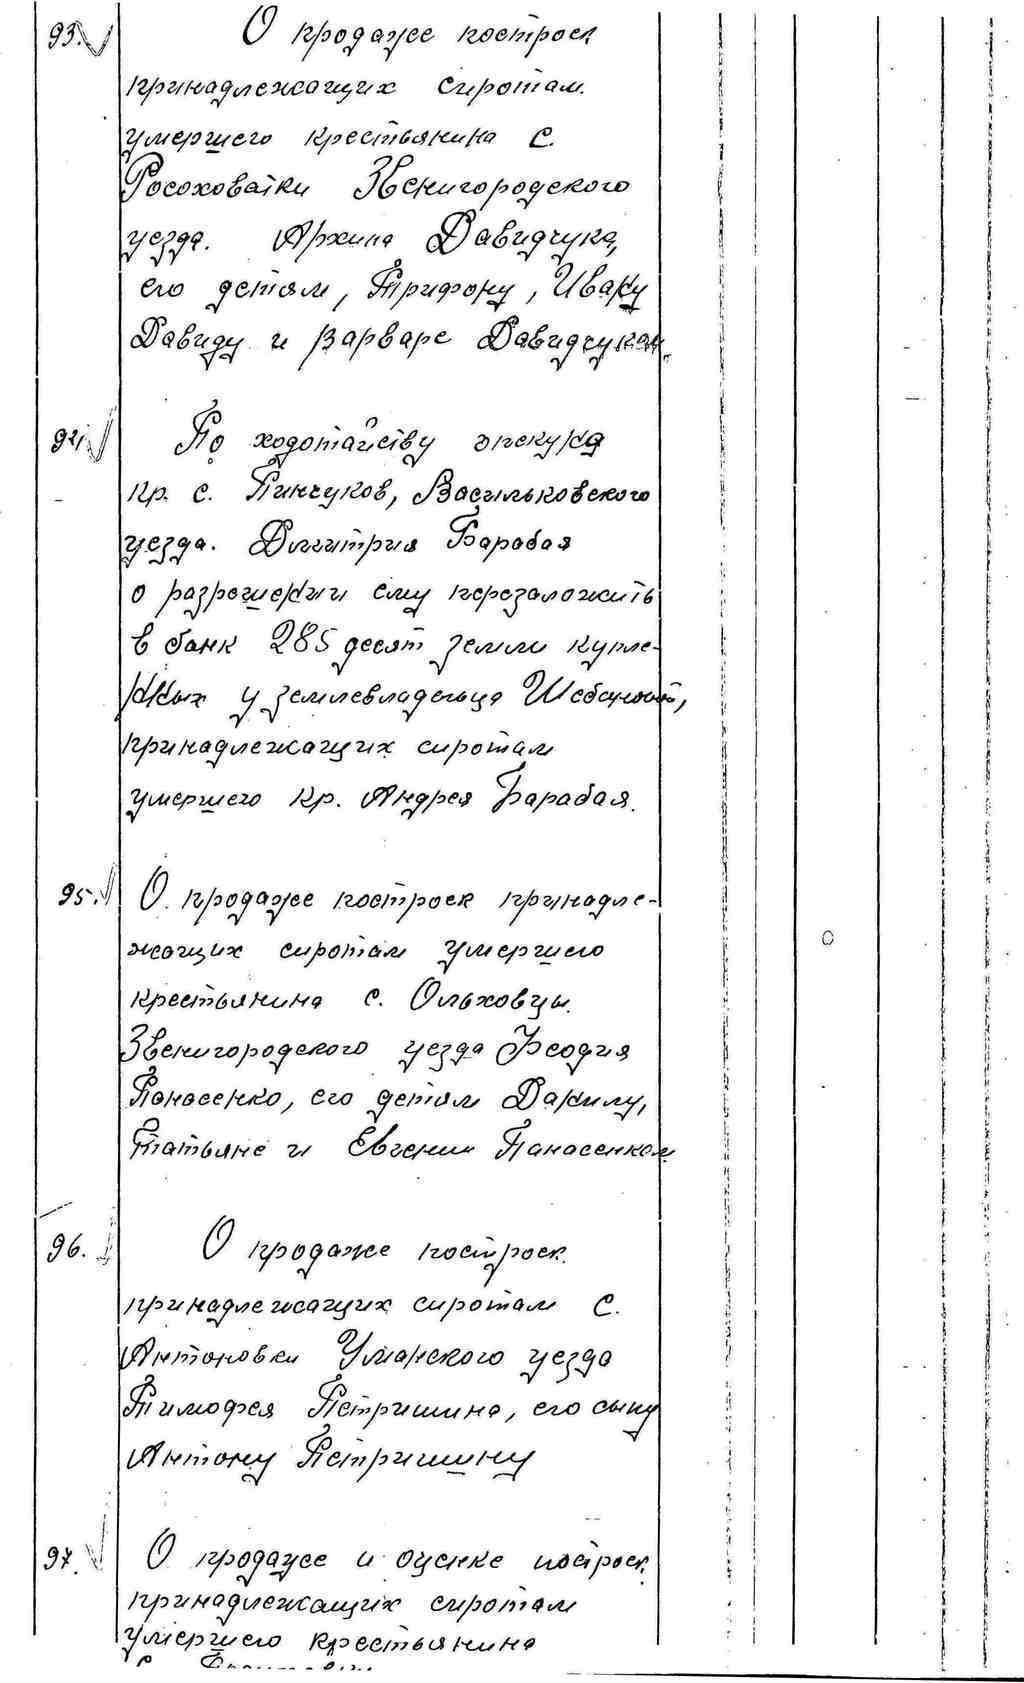 93. О продаже построек
принадлежащих сиротам
умершего крестьянина с.
Росоховатки Звенигородского
уезда. Архипа Давидчука,
его детям, Трифону, Ивану
Давиду и Варваре Давидчукам.
94. По ходотайству опекуна
кр. с. Пинчуков, Васильковского
уезда. Дмитрия Барабая
о разрешении ему перезаложить
в банк 285 десят земли купле-
нных у землевладельца
принадлежащих сиротам
умершего кр. Андрея Барабая.
95. О продаже построек принадле-
жащих сиротам умершего
крестьянина с. Ольховцы.
Звенигородского уезда Феодия
Панасенко, его детям Данилу,
Татьяне и Евгении Панасенкам
96. О продаже построек
принадлежащих сиротам с.
Антоновки Уманского уезда
Тимофея Петришина, его сыну
Антону Петришину
97. О продаже и оценке построек
принадлежащих сиротам
умершего крестьянина
с.